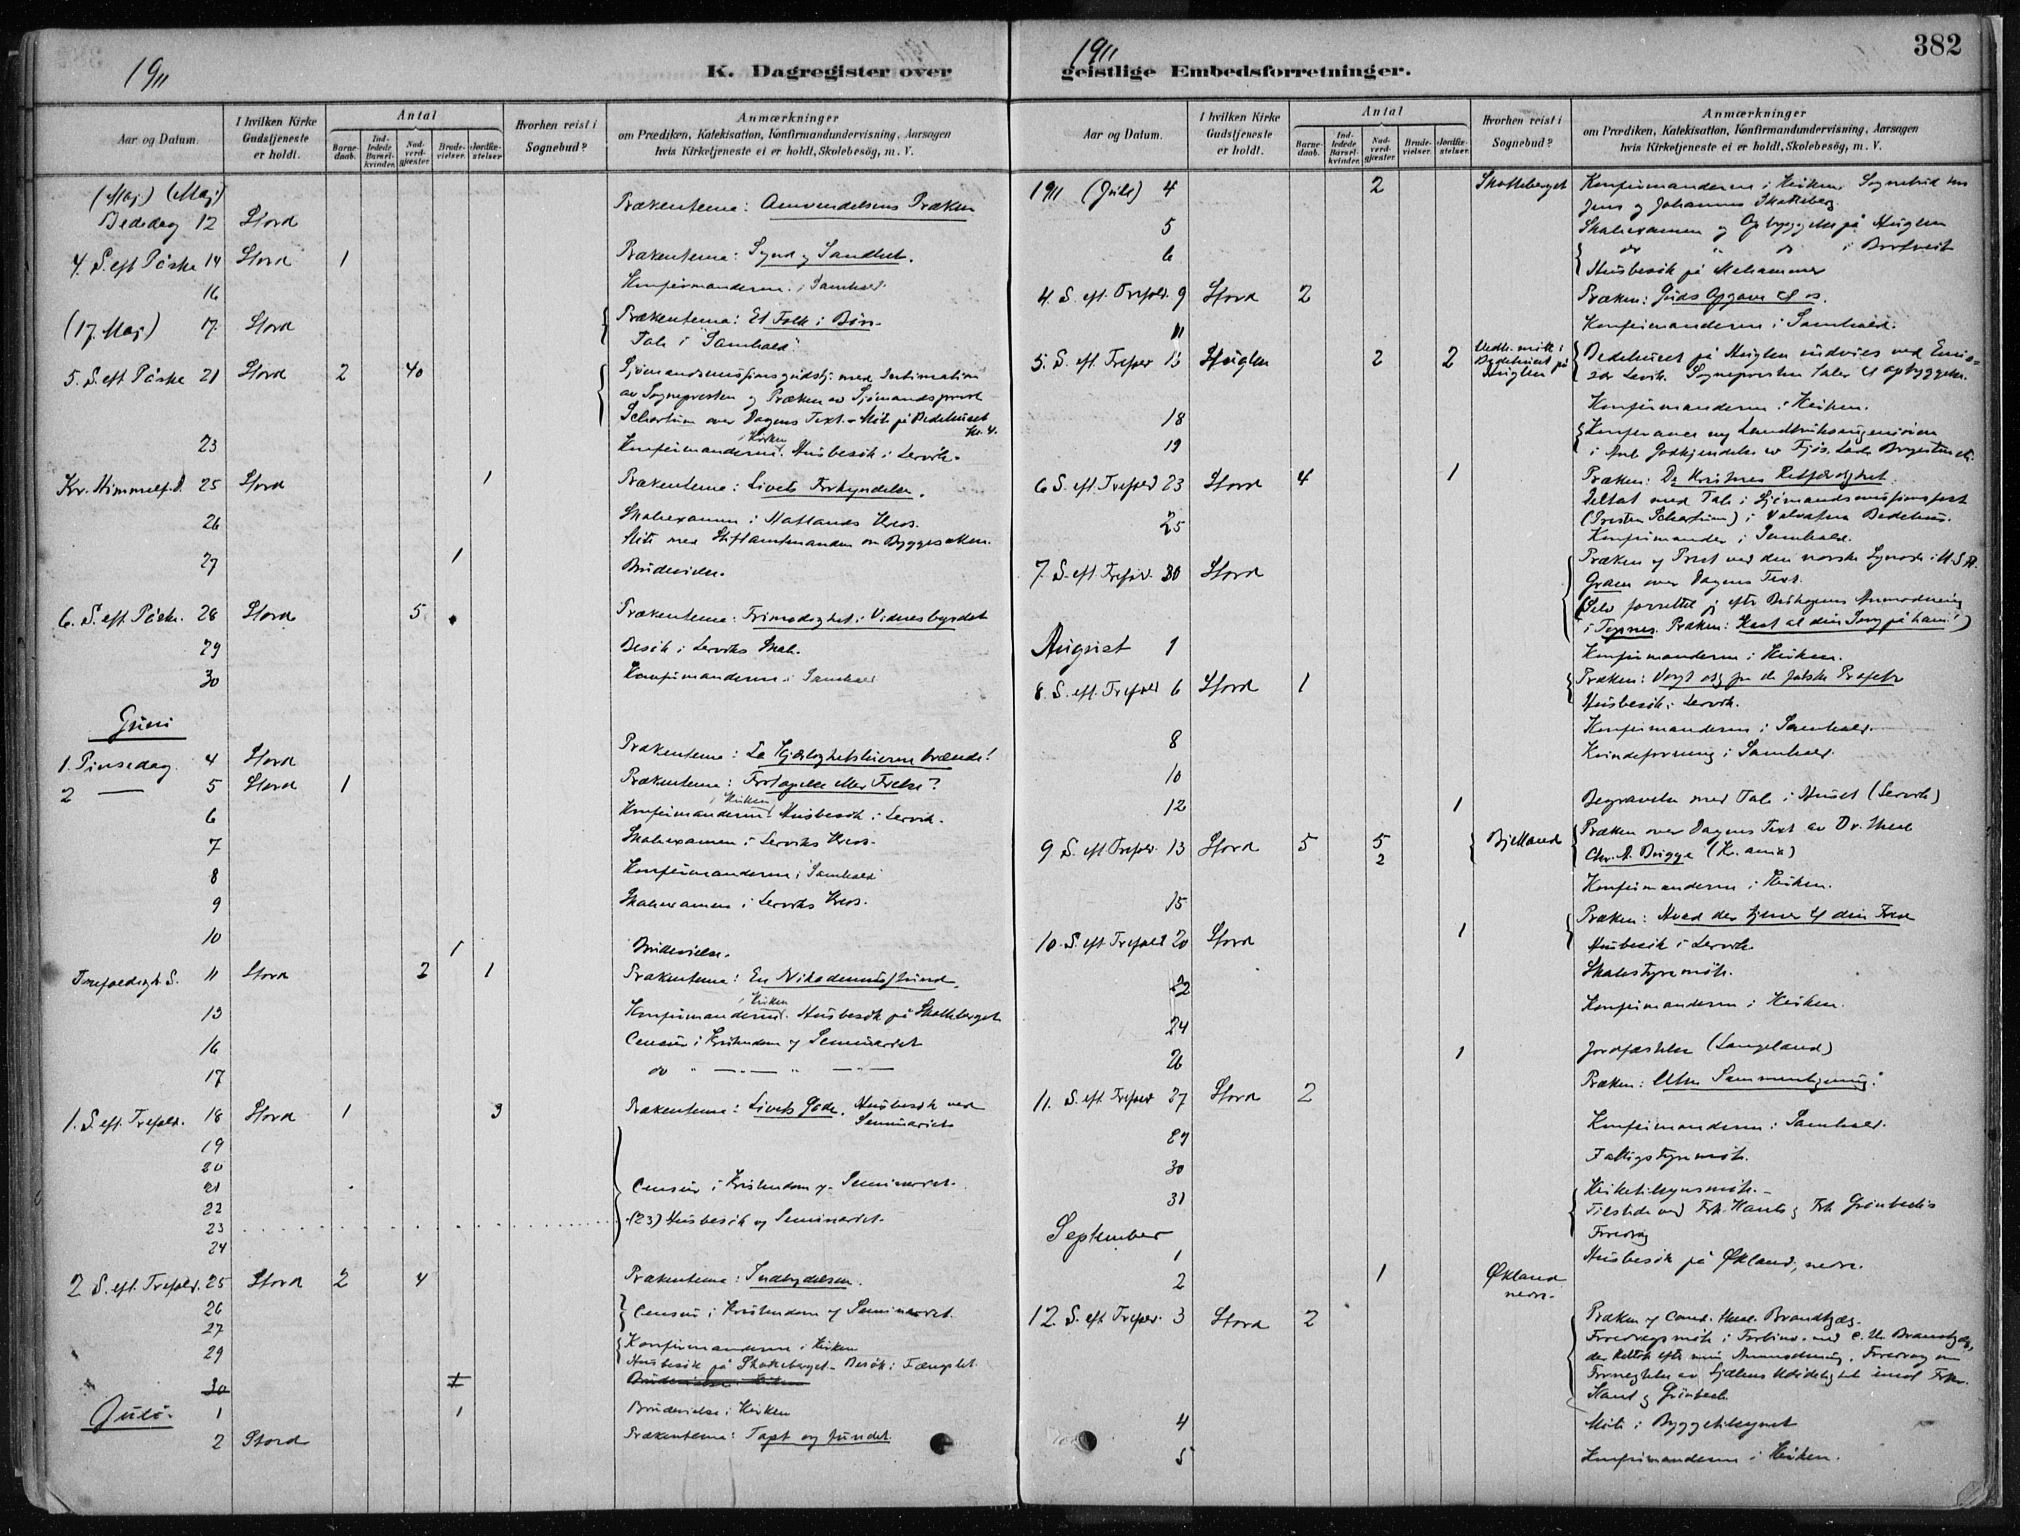 1911
K. Dagregister over
Aar og Datum.
I hvilken Kirke Gudstjeneste er holdt.
Antal
Barnedaab.
Indledede Barselkvinder.
Nadverdgjester
Brudevielser.
Jordfæstelser
Hvorhen reist i Sognebud?
Anmærkninger
om Prædiken, Katekisation, Konfirmandundervisning, Aarsagen
hvis Kirketjeneste ei er holdt, Skolebesög, m. V.
(Maj) (Maj)
Bededag 12 Stord Prækentema: Omvendelsens Præken
4. S. eft. Påske 14 Stord 1 Prækentema: Synd og Sandhet.
16 Konfirmanderne i Samhold.
(17. Maj) 17 Stord Prækentema: Et Folk i Bøn.
Tale i "Samhold".
5. S. eft. Påske 21 Stord 2 40 Sjömandsmissionsgudstj. med Intimation
av Sognepresten og Præken av Sjömandsprest
Schartum over Dagens Text. - Möte på Bedehuset
Kl. 4.
23 Konfirmanderne i Kirken. Husbesök i Lervik.
Kr. Himmelf. D. 25 Stord 1 Prækentema: Livets Forkyndelse.
26 Skoleexamen i Hatlands Kreds.
Möte med Stiftamtmanden om Byggesaken.
27 1 Brudevielse.
6. S. eft. Påske. 28 Stord 5 Prækentema: Frimodighet i Vidnesbyrdet
29 Besök i Lerviks Skole.
30 Konfirmanderne i Samhold
Juni
1. Pinsedag 4 Stord Prækentema: La Kjærlighetsluerne brænde!
2 — 5 Stord 1 Prækentema: Fortapelse eller Frelse?
6 Konfirmanderne i Kirken. Husbesök i Lervik.
7 Skoleexamen i Lerviks Kreds.
8 Konfirmanderne i Samhold
9 Skoleexamen i Lerviks Kreds.
10 1 Brudevielse.
Trefoldigh. S. 11 Stord 2 1 Prækentema: En Nikodemusstund.
13 Konfirmanderne i Kirken. Husbesök på Skotteberget
16 Censur i Kristendom og Seminariet
17 do " — " — " —
1. S. eft. Trefold. 18 Stord 1 3 Prækentema: Livets Gode. Husbesök ved
Seminariet
19
20
21 Censur i Kristendom og Seminariet.
22
23 (23) Husbesök og Seminariet.
24
2 S. eft. Trefold. 25 Stord 2 4 Prækentema: Indbydelsen.
26 Censur i Kristendom og Seminariet.
27
29 Konfirmanderne i Kirken
Husbesök på Skotteberget. Besök i Fængslet
30 1 Brudevielse i Kirken
Juli. 1 1 Brudevielse i Kirken
2 Stord Prækentema: Tapt og fundet.
1911
382
geistlige Embedsforretninger.
Aar og Datum.
I hvilken Kirke Gudstjeneste er holdt.
Antal
Barnedaab.
Indledede Barselkvinder.
Nadverdgjester
Brudevielser.
Jordfæstelser
Hvorhen reist i Sognebud?
Anmærkninger
om Prædiken, Katekisation, Konfirmandundervisning, Aarsagen
hvis Kirketjeneste ei er holdt, Skolebesög, m. V.
1911 (Juli) 4 2 Skotteberget Konfirmanderne i Kirken. Sognebud hos
Jens og Johannes Skotteberg
5 Skoleexamen og Opbyggelse på Huglen
6 do " do i Bortveit
Husbesök på Mehammer
4. S. eft. Trefold. 9 Stord 2 Præken: Guds Opgave til os.
11 Konfirmanderne i Samhold.
5. S. eft. Trefold 16 Huglen 2 2 Bedehuset på Huglen Bedehuset på Huglen indvies ved
Sognepresten taler til opbyggelse.
18 Konfirmanderne i Kirken.
19 Konferance Landbruksingeniören
6 S. eft. Trefold 23 Stord 4 1 Præken: De Kristnes Retfærdighet.
Deltat med Tale i Sjömandsmissionsfest
(Presten Schartum) i Valvatna Bedehus.
25 Konfirmander i Samhold.
7. S. eft. Trefold. 30 Stord Præken av Prest ved den norske Synode i U.S.A.
Gram over Dagens Text.
(Selv forrettet jeg efter Biskopens Anmodning
i Tysnes. Præken: Kast al din Sorg på ham!)
August 1 Konfirmanderne i Kirken.
8. S. eft. Trefold 6 Stord 1 Præken: Vogt dig for de falske Profeter
Husbesök i Lervik.
8 Konfirmanderne i Samhold.
10 Kvindeforening i Samhold.
12 1 Begravelse med Tale i Huset (Lervik)
9 S. eft Trefold. 13 Stord 5 5 2 Bjelland Præken over Dagens Text av Dr. theol
Chr. A. Brügge (Kr.ania)
15 Konfirmanderne i Kirken.
10. S. eft Trefold 20 Stord 1 Præken: Hvad der tjener til din Fred
Husbesök i Lervik
22 Skolestyremöte.
24 Konfirmanderne i Kirken.
26 1 Jordfæstelse (Langeland)
11. S. eft. Trefold 27 Stord 2 Præken: Uten Sammenligning.
29 Konfirmanderne i Samhold.
30 Fattigstyremöte.
31 Kirketilsynsmöte.
Tilstede ved Frk. Kants og Frk Grönbechs
Foredrag
September
1 Husbesök på Økland, nedre.
2 1 Økland nedre.
12. S. eft Trefold. 3 Stord 2 Præken av Cand. theol. Brandtzæg.
Foredragsmöte i Fortuna med C. U. Brandtzæg,
der deltok efter min Anmodning. Foredrag om
Fornegtelse av Sjælens Udödelighet imot Frkn.
Kant og Grönbech.
4 Möte i Byggetilsynet
5 Konfirmanderne i Kirken.